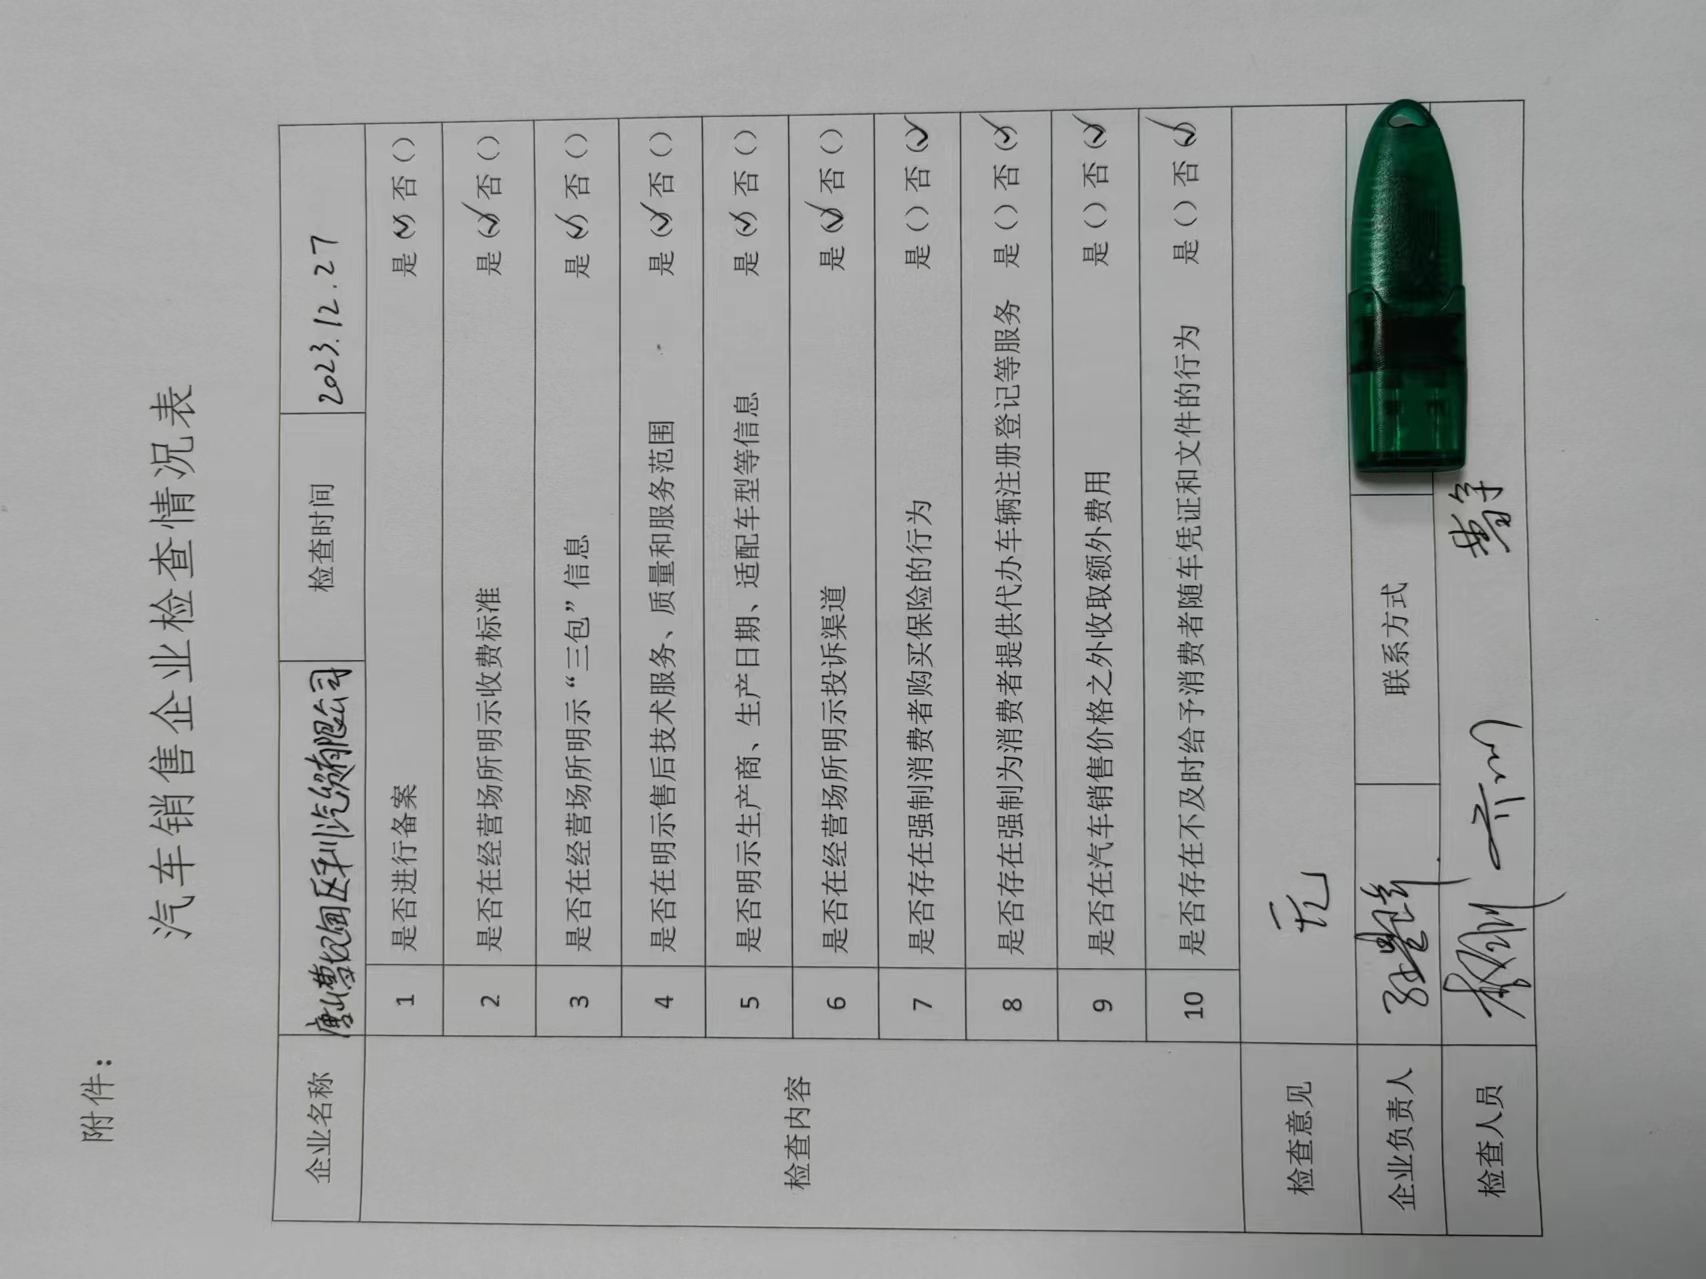 附件：
汽车销售企业检查情况表
企业名称 唐山曹妃甸区利川汽贸有限公司 检查时间 2023.12.27
检查内容
1 是否进行备案 是（✓）否（）
2 是否在经营场所明示收费标准 是（✓）否（）
3 是否在经营场所明示“三包”信息 是（✓）否（）
4 是否在明示售后技术服务、质量和服务范围 是（✓）否（）
5 是否明示生产商、生产日期、适配车型等信息 是（✓）否（）
6 是否在经营场所明示投诉渠道 是（✓）否（）
7 是否存在强制消费者购买保险的行为 是（）否（✓）
8 是否存在强制为消费者提供代办车辆注册登记等服务 是（）否（✓）
9 是否在汽车销售价格之外收取额外费用 是（）否（✓）
10 是否存在不及时给予消费者随车凭证和文件的行为 是（）否（✓）
检查意见 无
企业负责人 联系方式
检查人员